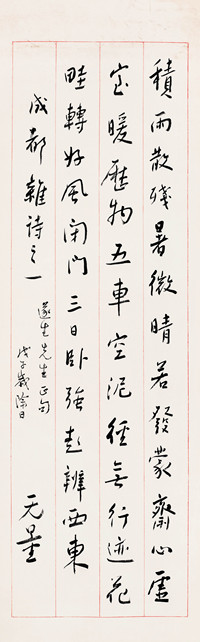 積雨散殘暑微晴若發蒙齋心虛
室暖歷物五車空泥徑無行迹花
畦轉好風閉門三日臥強起辨西東
成都雜詩之一
遂生先生正句
戊子歲除日
无量